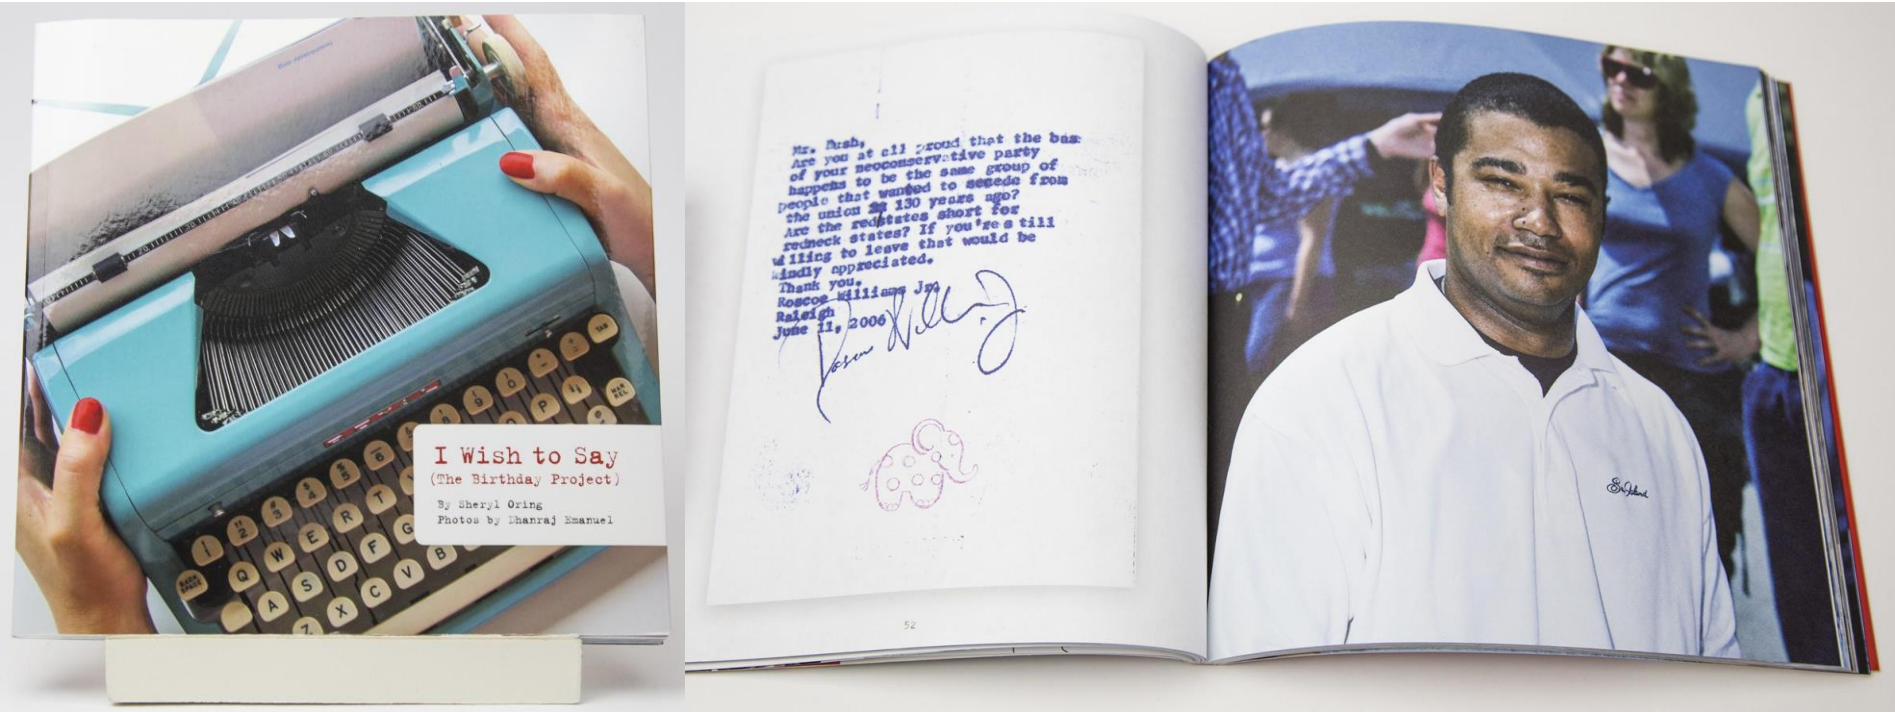 I Wish to Say
(The Birthday Project)
By Sheryl Oring
Photos by Dhanraj Emanuel
TAB
MAR
REL
BACK
SPACE
1 2 3 4 5 6 8 9 0
Q W E R T P
A S D F G
Z X C V B
Mr. Bush,
Are you at all proud that the base
of your neoconservative party
happens to be the same group of
people that wanted to secede from
the union 130 years ago?
Are the redstates short for
redneck states? If you're still
willing to leave that would be
kindly appreciated.
Thank you.
Roscoe Williams Jr.
Raleigh
June 11, 2006
52